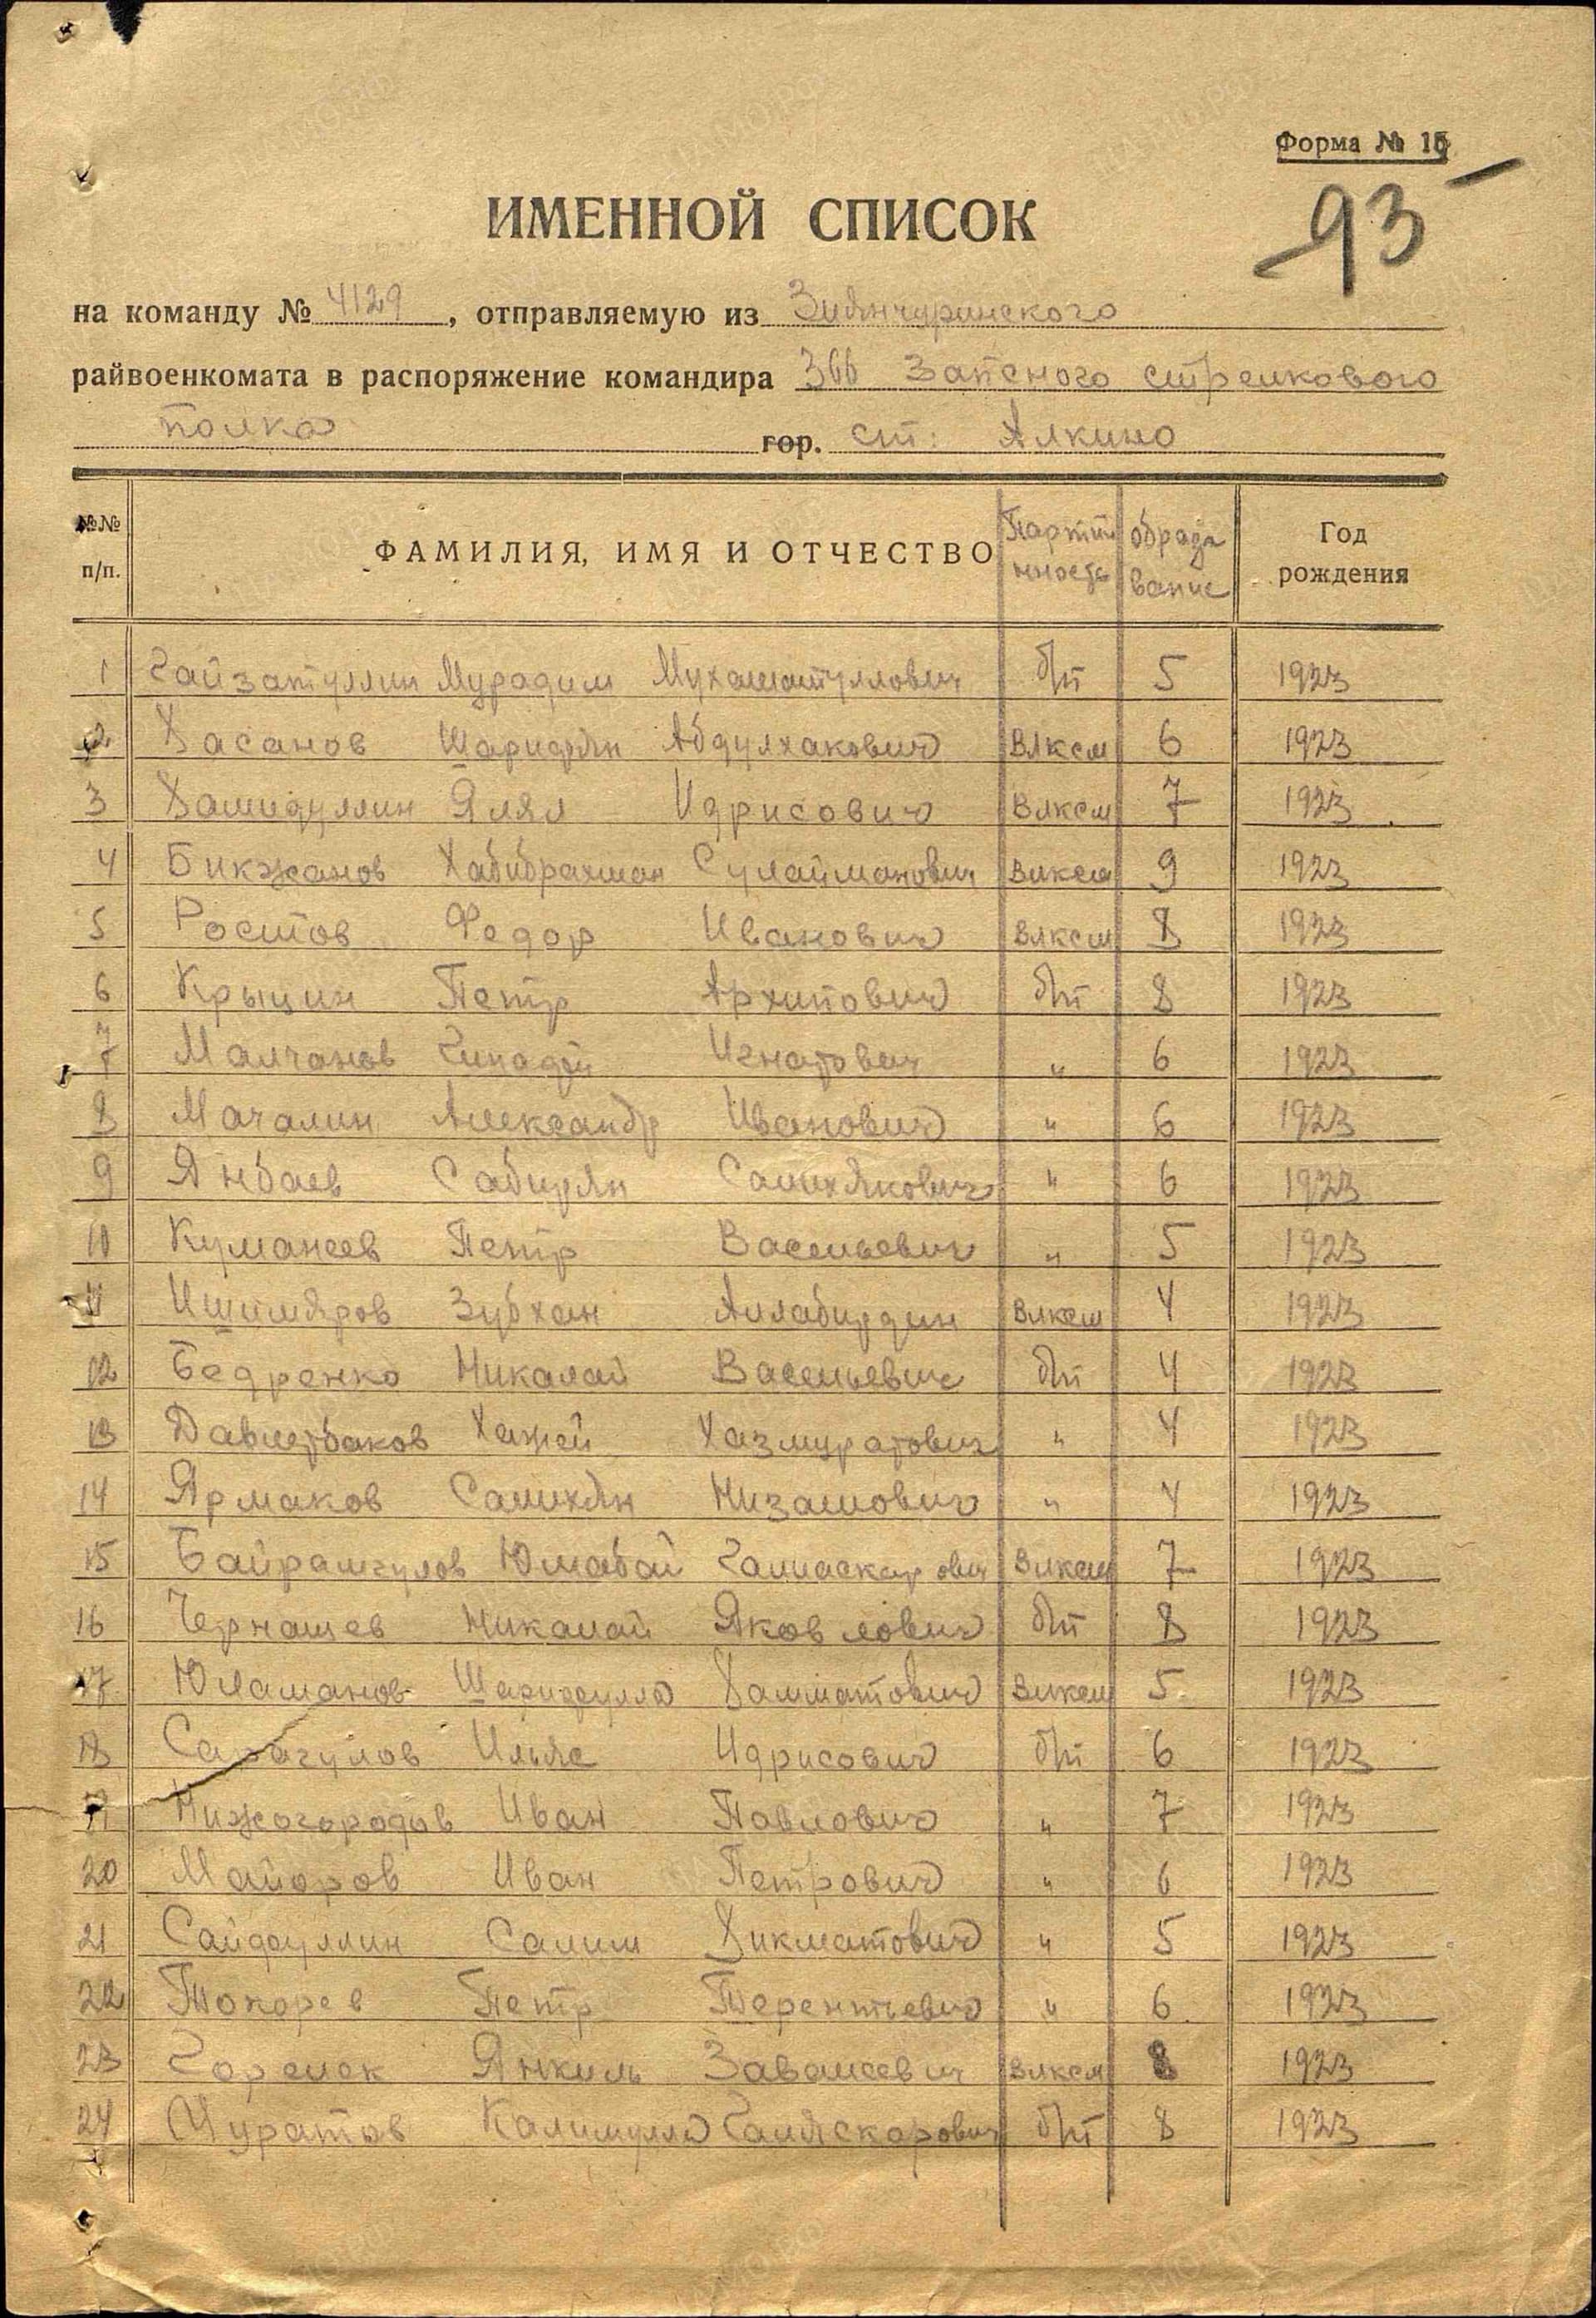 Форма № 15
93
ИМЕННОЙ СПИСОК
на команду № 4129, отправляемую из Зиянчуринского
райвоенкомата в распоряжение командира 366 Запсного стрелкового
полка гор. ст: Алкино
№№ п/п. ФАМИЛИЯ, ИМЯ И ОТЧЕСТВО Партий ность образо вание Год рождения
1 Гайзатуллин Мурадим Мухаматуллович б/п 5 1923
2 Хасанов Шаридян Абдулхакович Влксм 6 1923
3 Хамидуллин Ялял Идрисович Влксм 7 1923
4 Бикжанов Хабибрахман Сулайманович Влксм 9 1923
5 Ростов Федор Иванович Влксм 8 1923
6 Крыцин Петр Архипович б/п 8 1923
7 Малчанов Генадий Игнатович " 6 1923
8 Мачалин Александр Иванович " 6 1923
9 Янбаев Сабирян Салихянович " 6 1923
10 Куманеев Петр Васельевич " 5 1923
11 Ишимяров Зубхан Аллабирдин Влксм 4 1923
12 Бедренко Николай Васельевич б/п 4 1923
13 Давлетбаков Хажей Хазмуратович " 4 1923
14 Ярмаков Салихян Низамович " 4 1923
15 Байрамгулов Юмабай Галиаскарович Влксм 7 1923
16 Чернашев Николай Яковлович б/п 8 1923
17 Юламанов Хамматович Влксм 5 1923
18 Сарагулов Ильяс Идрисович б/п 6 1923
19 Нижогородов Иван Павлович " 7 1923
20 Майоров Иван Петрович " 6 1923
21 Сайфуллин Салим Хикматович " 5 1923
22 Токорев Петр Терентьевич " 6 1923
23 Горелек Янкиль Завалеевич Влксм 8 1923
24 Муратов Калимулла Галяскарович б/п 8 1923